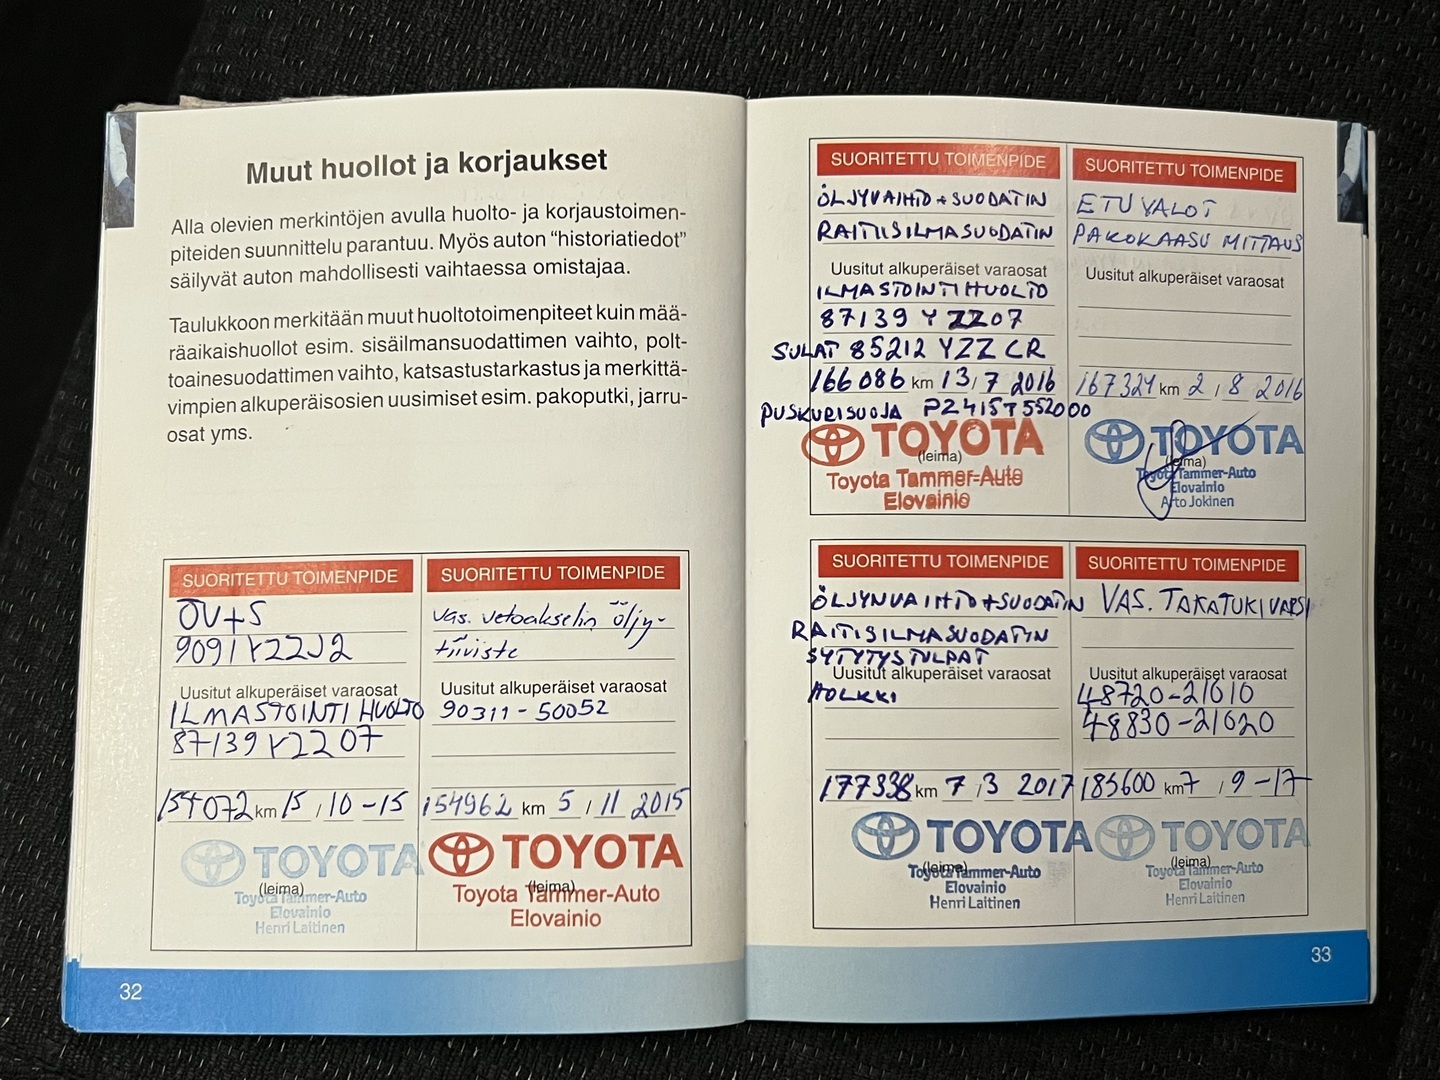 Muut huollot ja korjaukset
Alla olevien merkintöjen avulla huolto- ja korjaustoimen-
piteiden suunnittelu parantuu. Myös auton “historiatiedot”
säilyvät auton mahdollisesti vaihtaessa omistajaa.
Taulukkoon merkitään muut huoltotoimenpiteet kuin mää-
räaikaishuollot esim. sisäilmansuodattimen vaihto, polt-
toainesuodattimen vaihto, katsastustarkastus ja merkittä-
vimpien alkuperäisosien uusimiset esim. pakoputki, jarru-
osat yms.
SUORITETTU TOIMENPIDE
ÖV+S
9091YZZJ2
Uusitut alkuperäiset varaosat
ILMASTOINTI HUOLTO
87139YZZ07
154072 km 15 / 10 -15
TOYOTA
(leima)
Toyota Tammer-Auto
Elovainio
Henri Laitinen
SUORITETTU TOIMENPIDE
Vas. vetoakselin öljy-
tiiviste
Uusitut alkuperäiset varaosat
90311-50052
154962 km 5 / 11 2015
TOYOTA
(leima)
Toyota Tammer-Auto
Elovainio
32
SUORITETTU TOIMENPIDE
ÖLJYVAIHTO+SUODATIN
RAITIISILMASUODATIN
Uusitut alkuperäiset varaosat
ILMASTOINTIHUOLTO
87139 YZZ07
SULAT 85212 YZZ CR
166086 km 13 / 7 2016
PUSKURISUOJA PZ415T552000
TOYOTA
(leima)
Toyota Tammer-Auto
Elovainio
SUORITETTU TOIMENPIDE
ETUVALOT
PAKOKAASU MITTAUS
Uusitut alkuperäiset varaosat
167324 km 2 / 8 2016
TOYOTA
(leima)
Toyota Tammer-Auto
Elovainio
Arto Jokinen
SUORITETTU TOIMENPIDE
ÖLJYNVAIHTO+SUODATIN
RAITISILMASUODATIN
SYTYTYSTULPAT
Uusitut alkuperäiset varaosat
HOLKKI
177338 km 7 / 3 2017
TOYOTA
(leima)
Toyota Tammer-Auto
Elovainio
Henri Laitinen
SUORITETTU TOIMENPIDE
VAS. TAKATUKIVARSI
Uusitut alkuperäiset varaosat
48720-21010
48830-21020
185600 km 7 / 9 -17
TOYOTA
(leima)
Toyota Tammer-Auto
Elovainio
Henri Laitinen
33